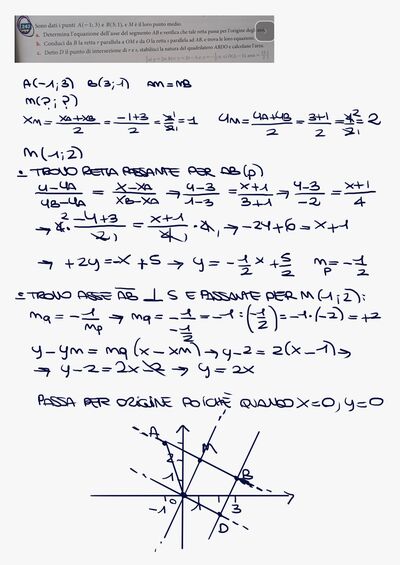 Sono dati i punti A(−1; 3) e B(3; 1), e M è il loro punto medio.
a. Determina l'equazione dell'asse del segmento AB e verifica che tale retta passa per l'origine degli assi.
b. Conduci da B la retta r parallela a OM e da O la retta s parallela ad AB, e trova le loro equazioni.
c. Detto D il punto di intersezione di r e s, stabilisci la natura del quadrilatero ABDO e calcolane l'area.
A(-1;3) B(3;1) AM=MB
M(?;?)
XM = XA+XB/2 = -1+3/2 = 2/2 = 1 YM = YA+YB/2 = 3+1/2 = 4/2 = 2
M(1;2)
TROVO RETTA PASSANTE PER AB(P)
Y-YA/YB-YA = X-XA/XB-XA → Y-3/1-3 = X+1/3+1 → Y-3/-2 = X+1/4
→ 4·-Y+3/2 = X+1/4·4 → -2Y+6 = X+1
→ +2Y = -X+5 → Y = -1/2 X + 5/2 mP = -1/2
TROVO ASSE AB ⊥ S E PASSANTE PER M(1;2):
mq = -1/mP → mq = -1/-1/2 = -1:(-1/2) = -1·(-2) = +2
Y-YM = mq(X-XM) → Y-2 = 2(X-1) →
→ Y-2 = 2X-2 → Y = 2X
PASSA PER ORIGINE POICHÈ QUANDO X=0, Y=0
A
M
2
1
B
-1 0 1 3
D